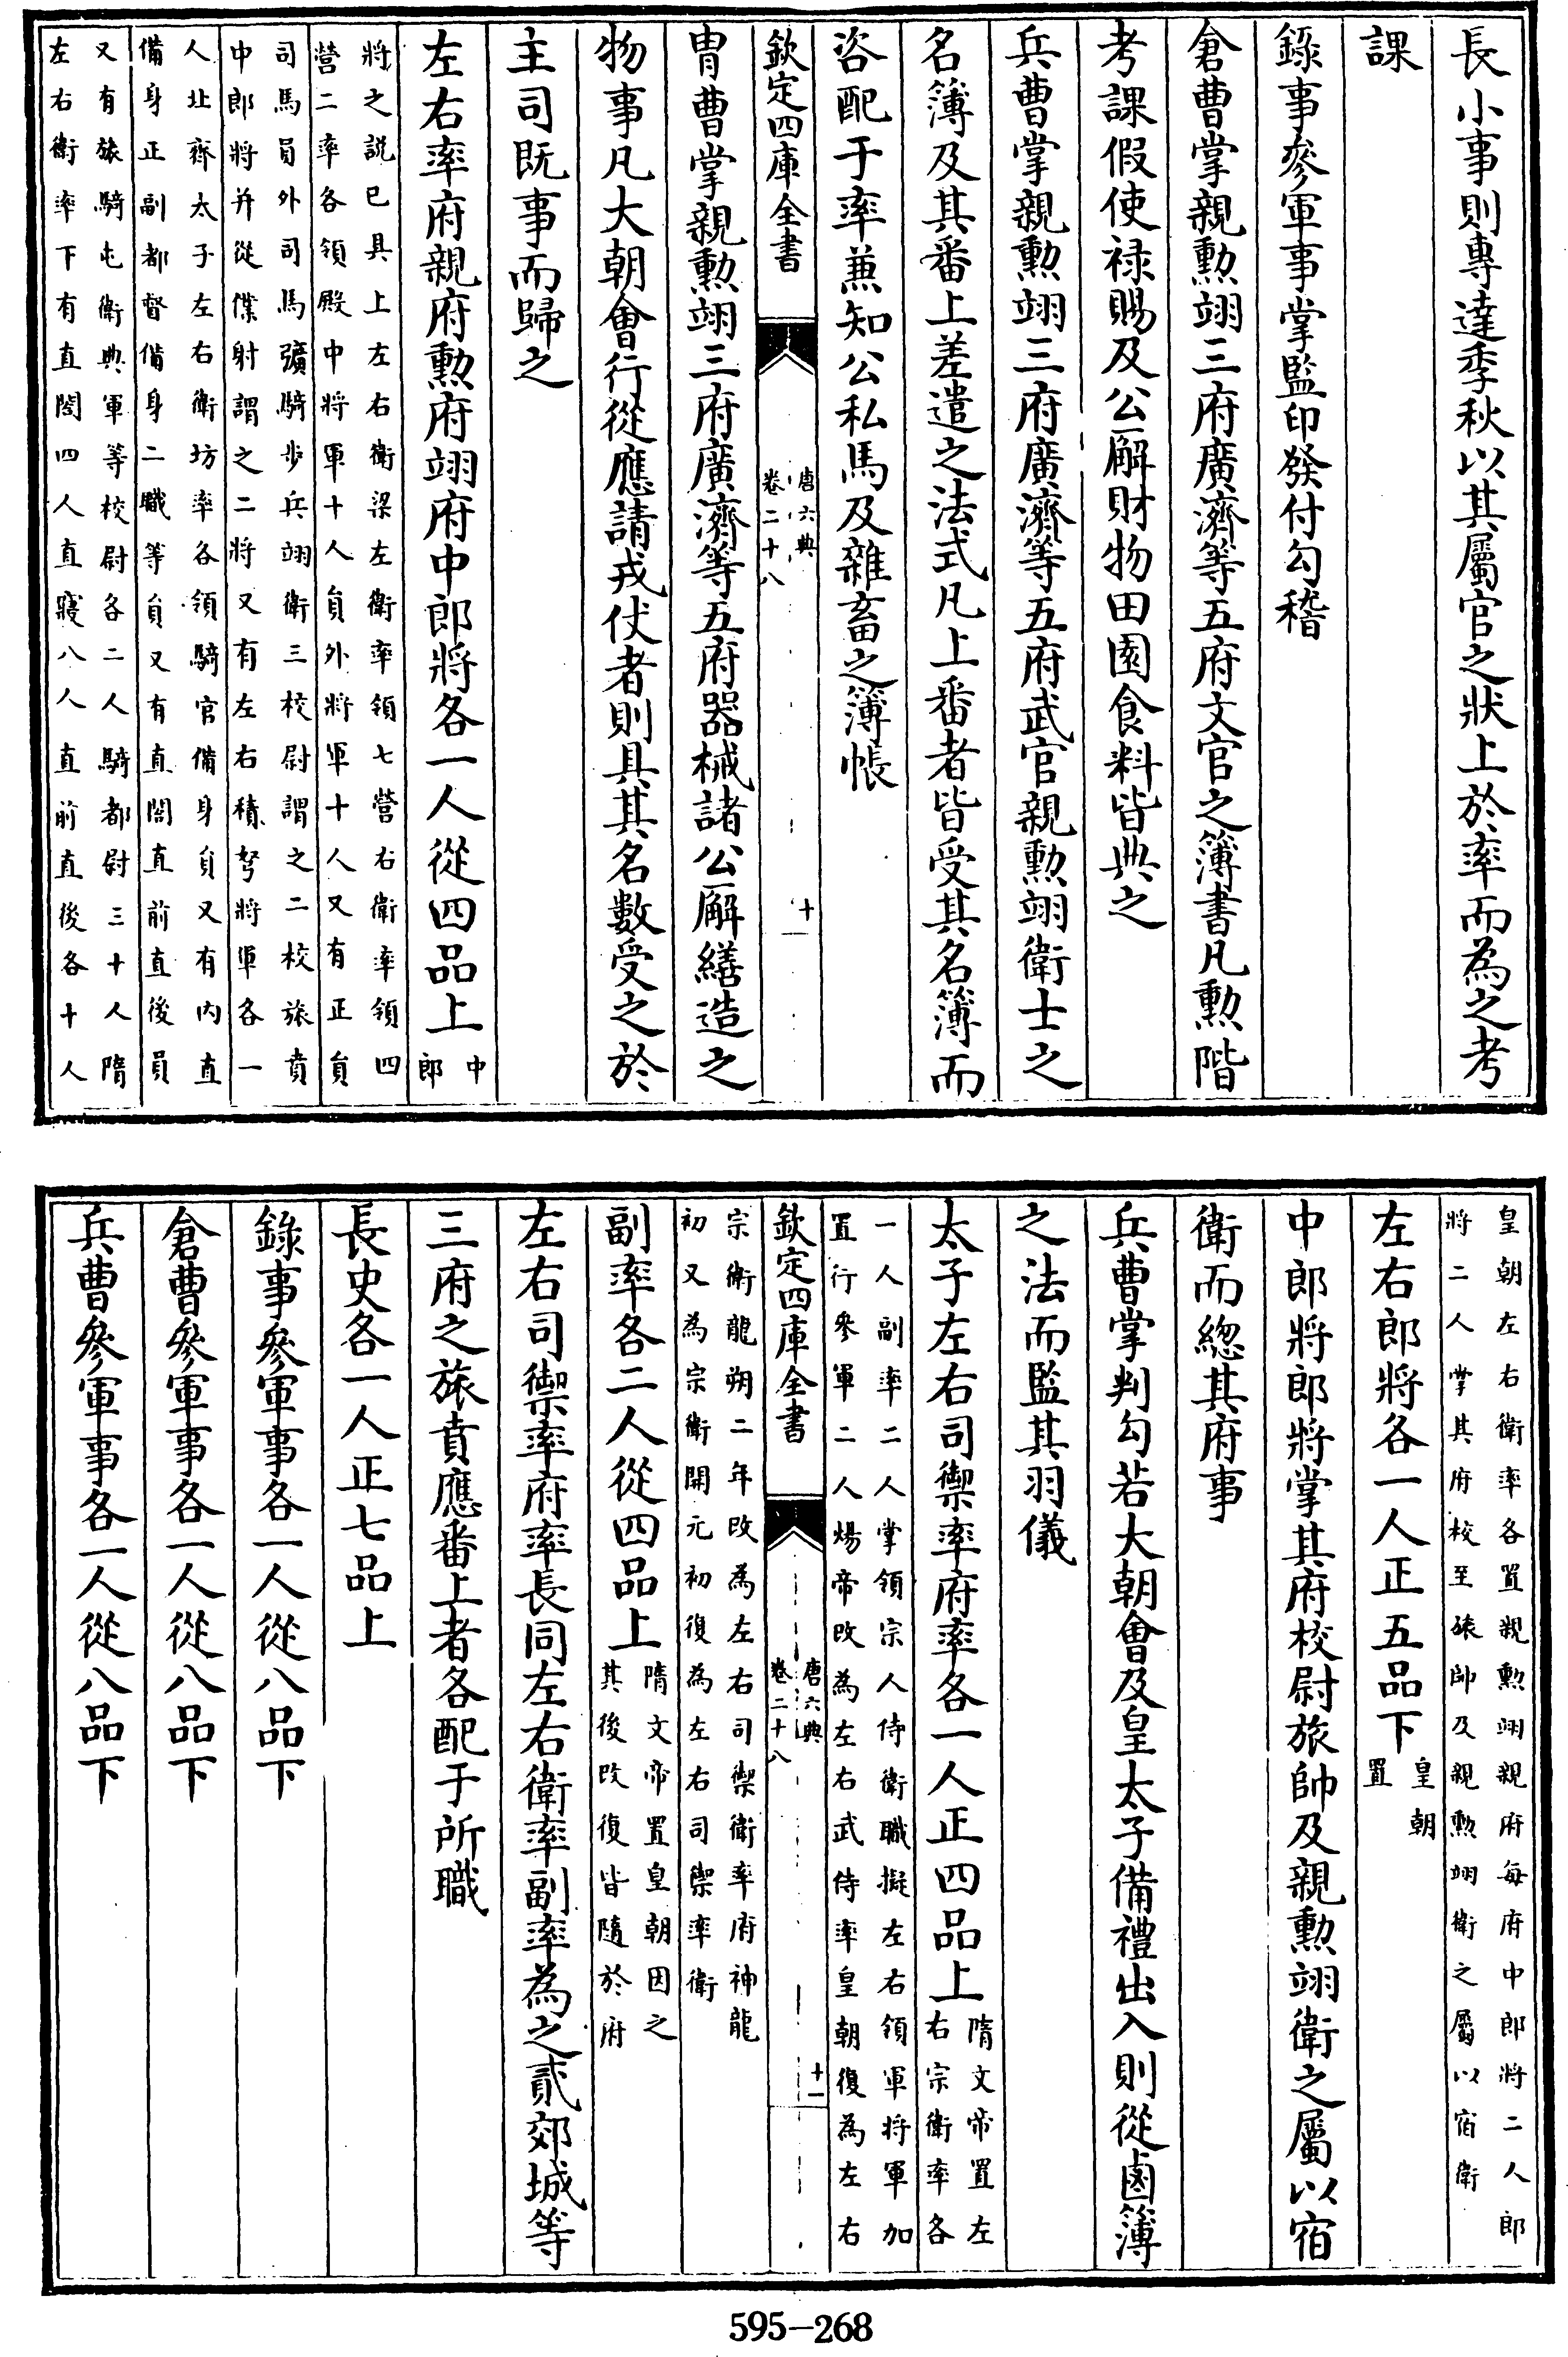 長小事則專達季秋以其屬官之狀上於率而為之考
課
錄事參軍事掌監印發付勾稽
倉曹掌親勲翊三府廣濟等五府文官之簿書凡勲階
考課假使禄賜及公廨財物田園食料皆典之
兵曹掌親勲翊三府廣濟等五府武官親勲翊衛士之
名簿及其番上差遣之法式凡上番者皆受其名簿而
咨配于率兼知公私馬及雜畜之簿帳
欽定四庫全書
唐六典
卷二十八
十
冑曹掌親勲翊三府廣濟等五府器械諸公廨繕造之
物事凡大朝會行從應請戎仗者則具其名數受之於
主司既事而歸之
左右率府親府勲府翊府中郎將各一人從四品上
中
郎
將之説已具上左右衛梁左衛率領七營右衛率領四
營二率各領殿中將軍十人員外將軍十人又有正員
司馬員外司馬彍騎步兵翊衛三校尉謂之二校旅賁
中郎將并從僕射謂之二將又有左右積弩將軍各一
人北齊太子左右衛坊率各領騎官備身員又有内直
備身正副都督備身二職等員又有直閤直前直後員
又有旅騎屯衛典軍等校尉各二人騎都尉三十人隋
左右衛率下有直閤四人直寢八人直前直後各十人
皇朝左右衛率各置親勲翊親府每府中郎將二人郎
將二人掌其府校至旅帥及親勲翊衛之屬以宿衛
左右郎將各一人正五品下
皇朝
置
中郎將郎將掌其府校尉旅帥及親勲翊衛之屬以宿
衛而緫其府事
兵曹掌判勾若大朝會及皇太子備禮出入則從鹵簿
之法而監其羽儀
太子左右司禦率府率各一人正四品上
隋文帝置左
右宗衛率各
一人副率二人掌領宗人侍衛職擬左右領軍將軍加
置行參軍二人煬帝改為左右武侍率皇朝復為左右
欽定四庫全書
唐六典
卷二十八
十一
宗衛龍朔二年改為左右司禦衛率府神龍
初又為宗衛開元初復為左右司禦率衛
副率各二人從四品上
隋文帝置皇朝因之
其後改復皆隨於府
左右司禦率府率長同左右衛率副率為之貳郊城等
三府之旅賁應番上者各配于所職
長史各一人正七品上
錄事參軍事各一人從八品下
倉曹參軍事各一人從八品下
兵曹參軍事各一人從八品下
595-268